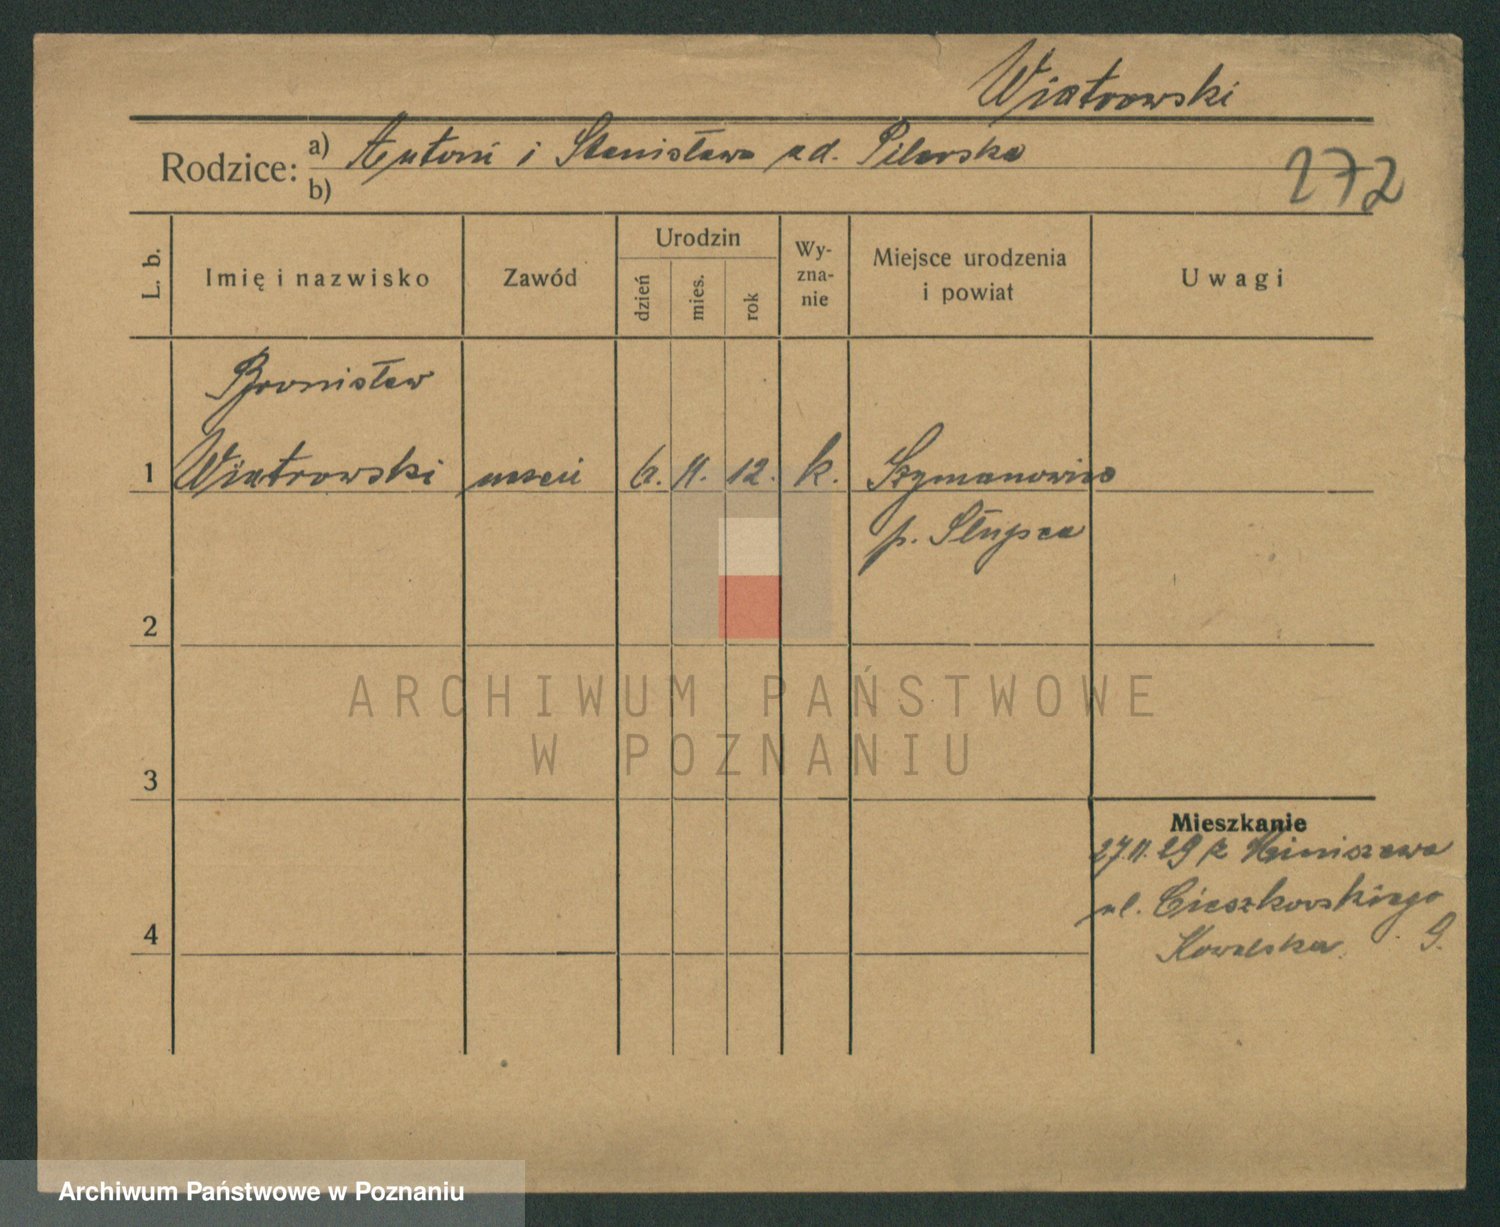 Wiatrowski
Rodzice: a) Antoni i Stanisława zd. Pilarska
b)
272
L. b.
Imię i nazwisko
Zawód
Urodzin
dzień
mies.
rok
Wy-
zna-
nie
Miejsce urodzenia
i powiat
Uwagi
Bronisław
1 Wiatrowski uczeń 6. 11. 12. k. Szymanowice
p. Słupca
2
ARCHIWUM PAŃSTWOWE
W POZNANIU
3
Mieszkanie
27.11.29 z
ul. Cieszkowskiego
9.
Kowalska
4
Archiwum Państwowe w Poznaniu